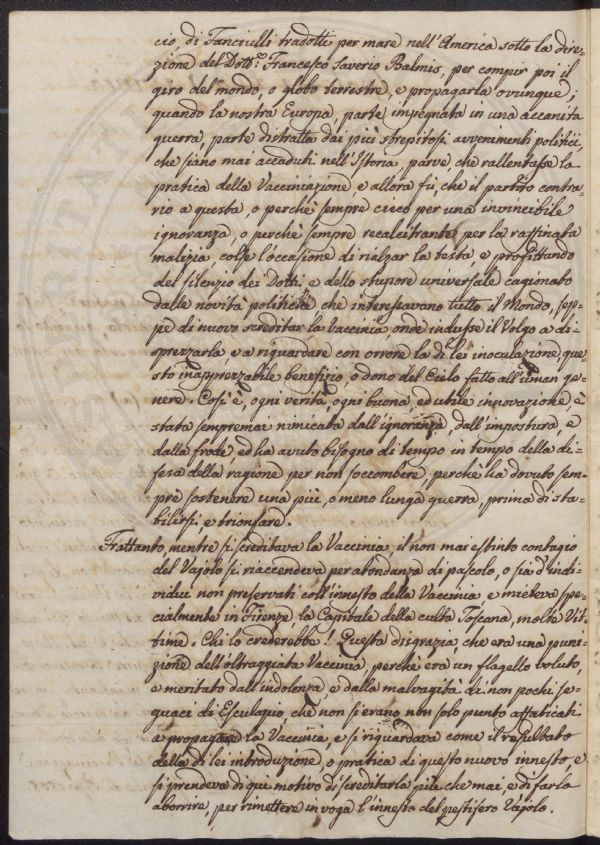 cio, di Fanciulli tradotti per mare nell'America sotto la dire-
zione del Dottr. Francesco Saverio Balmis, per compir poi il
giro del mondo, o globo terrestre, e propagarla ovunque;
quando la nostra Europa, parte impegnata in una accanita
guerra, parte distratta dai più strepitosi avvenimenti politici,
che siano mai accaduti nell'Istoria, parve che rallentasse la
pratica della Vacciniazione e allora fù, che il partito contra-
rio a questa, o perchè sempre cieco per una invincibile
ignoranza, o perchè sempre recalcitrante per la raffinata
malizia, colse l'occasione di rialzar la testa, e profittando
del silenzio dei Dotti, e dello stupore universale cagionato
dalle novità politiche che interessavano tutto il Mondo, sep-
pe di nuovo screditar la vaccinia, onde indusse il Volgo a di-
sprezzarla e a riguardare con orrore la di lei inoculazione que-
sto inapprezzabile benefizio, o dono del Cielo fatto all'uman ge-
nere. Così è, ogni verità, ogni buona, ed utile innovazione, è
stata sempremai nimicata dall'ignoranza, dall'impostura, e
dalla frode, ed ha avuto bisogno di tempo in tempo della di-
fesa della ragione per non soccombere, perchè ha dovuto sem-
pre sostenere una più, o meno lunga guerra, prima di sta-
bilirsi, e trionfare.
Frattanto, mentre si screditava la Vaccinia, il non mai estinto contagio
del Vajolo si riaccendeva per abondanza di pascolo, o sia d'indi-
vidui non preservati coll'innesto della Vaccinia e mieteva spe-
cialmente in Firenze, la Capitale della culta Toscana, molte Vit-
time. Chi lo crederebbe! Questa disgrazia, che era una puni-
zione dell'oltraggiata Vaccinia, perchè era un flagello voluto,
e meritato dall'indolenza e dalla malvagità di non pochi se-
guaci di Esculapio, che non si erano non solo punto affaticati
a propagare la Vaccinia, e si riguardava come il resultato
della di lei introduzione, o pratica di questo nuovo innesto, e
si prendeva di qui motivo di screditarla più che mai, e di farla
aborrire, per rimettere in voga l'innesto del pestifero Vajolo.